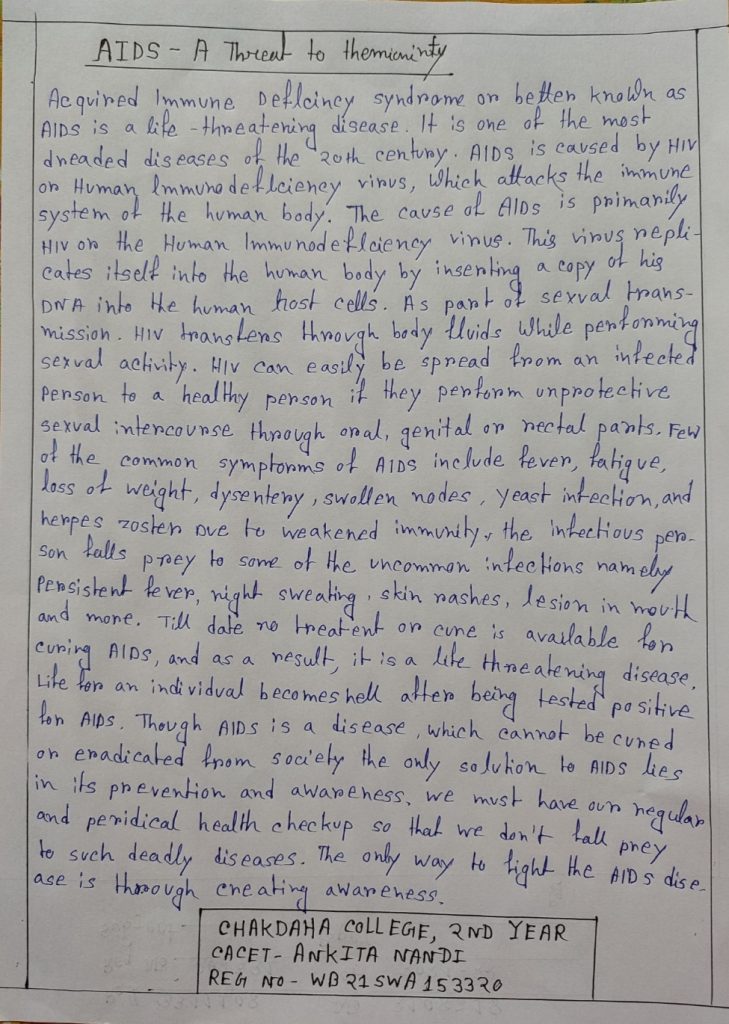 AIDS - A Threat to themicninty
Acquired Immune Deflcincy syndrome or better known as
AIDS is a life - threatening disease. It is one of the most
dreaded diseases of the 20th century. AIDS is caused by HIV
or Human Immunodeflciency virus, Which attacks the immune
system of the human body. The cause of AIDs is primarily
HIV or the Human Immunodeflciency virus. This virus repli-
cates itself into the human body by inserting a copy of his
DNA into the human host cells. As part of sexual trans-
mission. HIV transfers through body fluids While performing
sexual activity. HIV can easily be spread from an infected
person to a healthy person if they perform unprotective
sexual intercourse through oral, genital or rectal parts. Few
of the common symptorms of AIDS include fever, fatigue,
loss of weight, dysentery, swollen nodes, yeast infection, and
herpes zoster Due to weakened immunity, the infectious per-
son falls prey to some of the uncommon infections namely
Persistent fever, night sweating, skin rashes, lesion in mouth
and more. Till date no treatent or cure is available for
curing AIDS, and as a result, it is a life threatening disease.
Life for an individual becomes hell after being tested positive
for AIDS. Though AIDS is a disease, which cannot be cured
or eradicated from society the only solution to AIDS lies
in its prevention and awareness. we must have our regular
and peridical health checkup so that we don't fall prey
to such deadly diseases. The only way to fight the AIDS dise-
ase is through creating awareness.
CHAKDAHA COLLEGE, 2ND YEAR
CACET- ANKITA NANDI
REG NO - WB21SWA153320